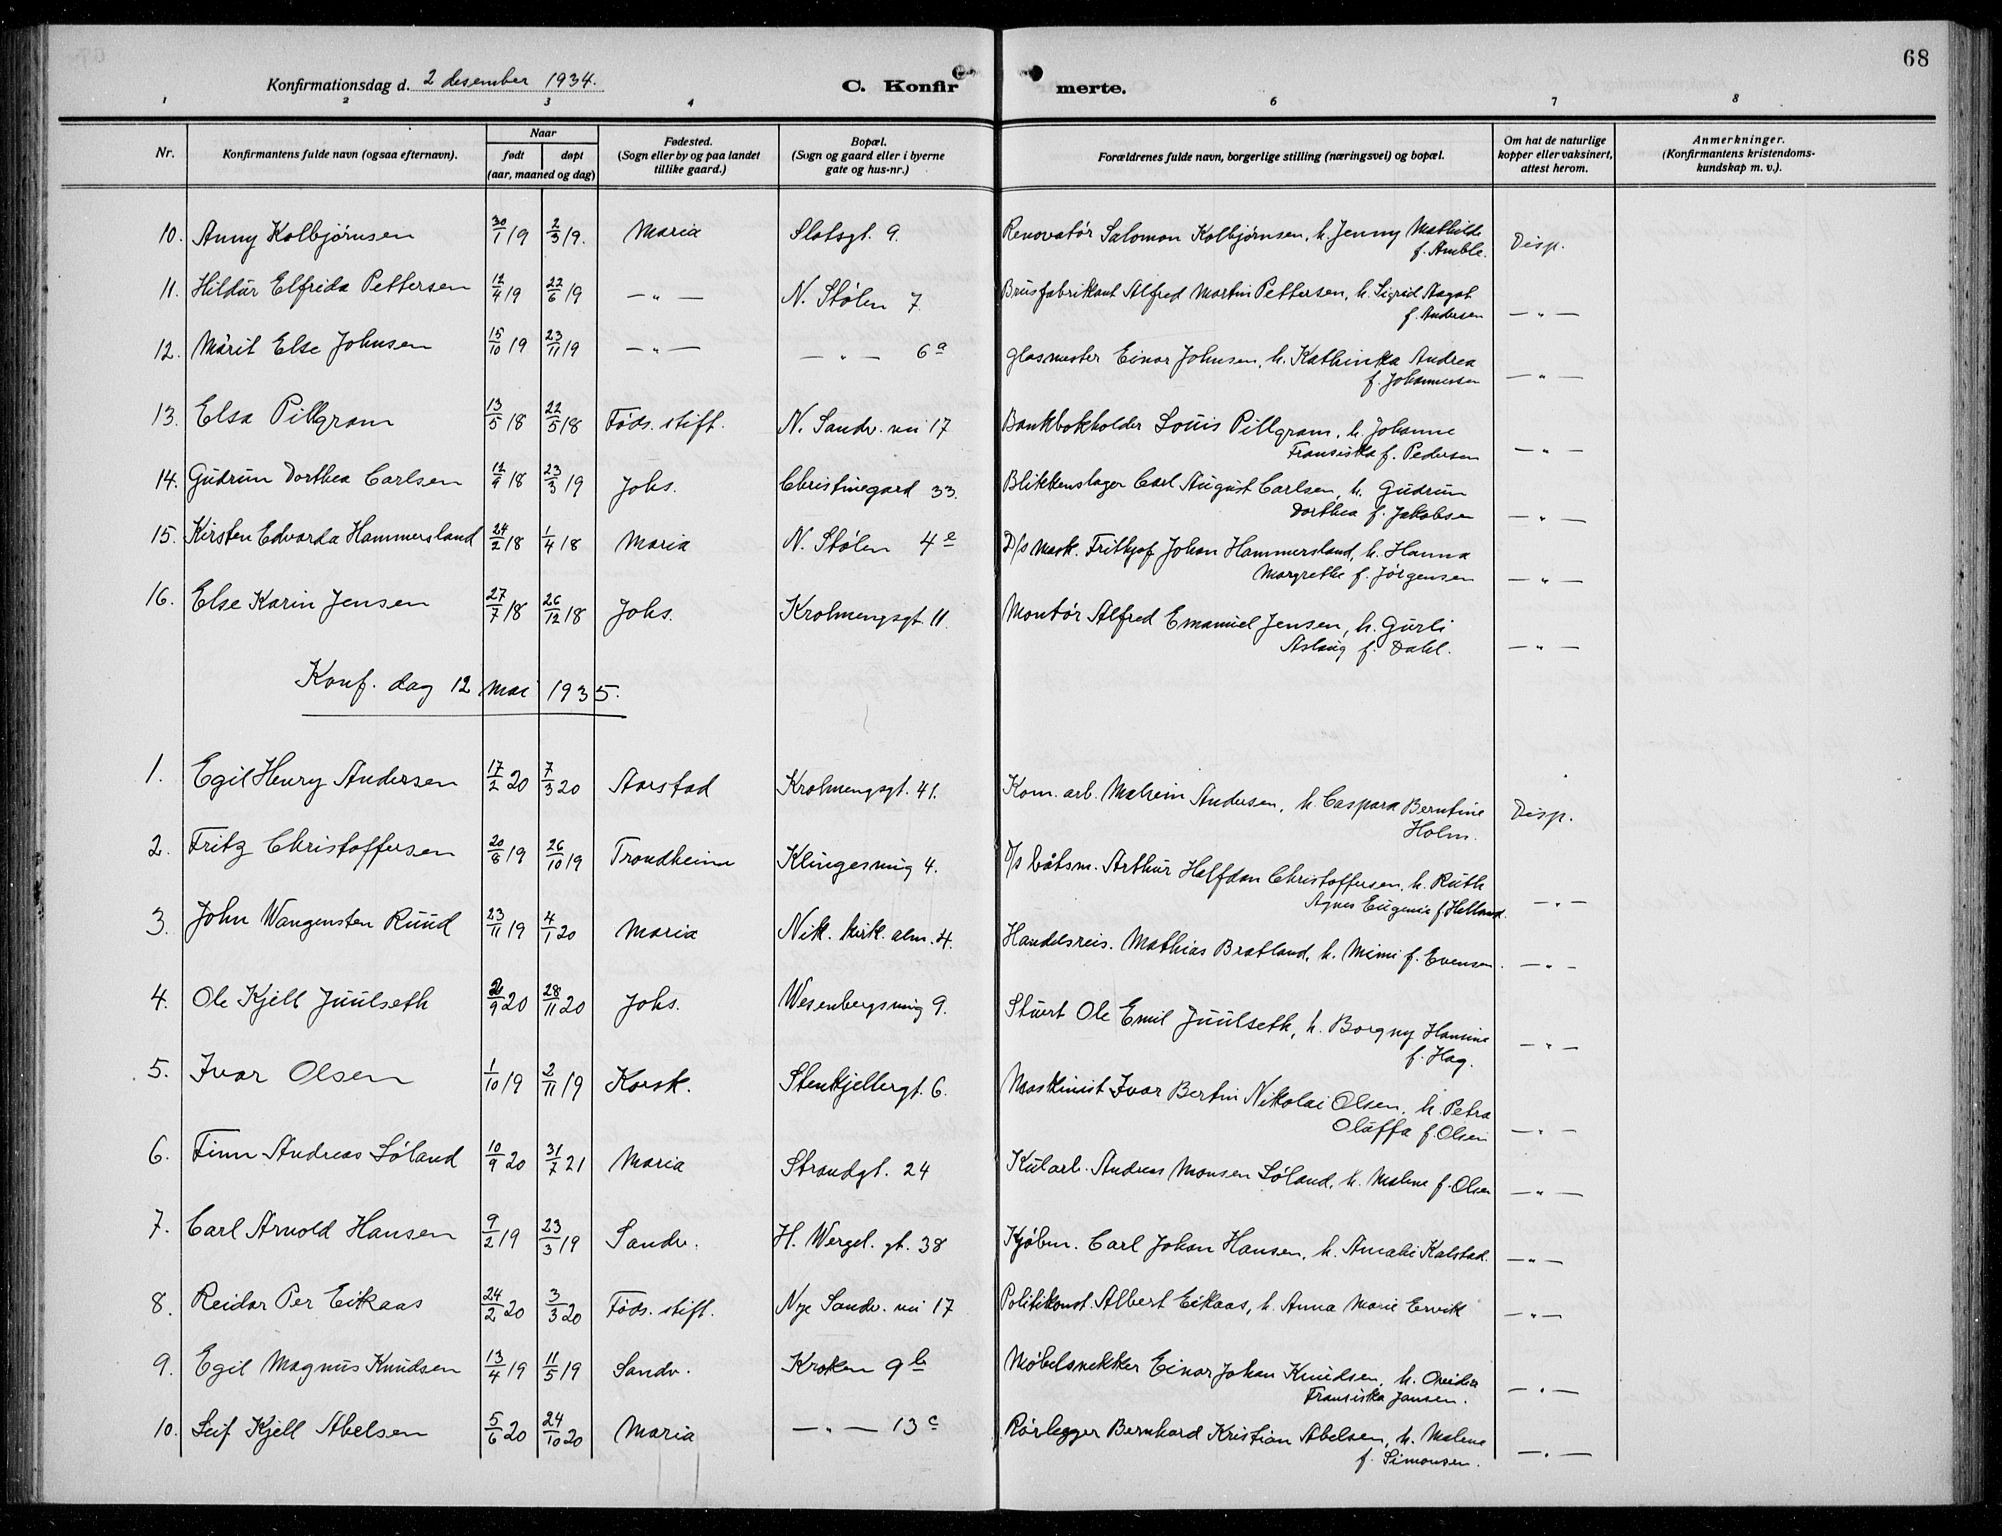 68
Konfirmationsdag d. 2 desember 1934.
C. Konfirmerte.
1 2 3 4 6 7 8
Nr.
Konfirmantens fulde navn (ogsaa efternavn).
Naar
født døpt
(aar, maaned og dag)
Fødested.
(Sogn eller by og paa landet
tillike gaard.)
Bopæl.
(Sogn og gaard eller i byerne
gate og hus-nr.)
Forældrenes fulde navn, borgerlige stilling (næringsvei) og bopæl.
Om hat de naturlige
kopper eller vaksinert,
attest herom.
Anmerkninger.
(Konfirmantens kristendoms-
kundskap m. v.).
10. Anny Kolbjørnsen 30/1 19 2/3 19. Maria Slotsgt. 9. Renovatør Salomon Kolbjørnsen, h. Jenny Mathilde Disp.
f. Amble.
11. Hildur Elfrida Pettersen 12/4 19 22/6 19 — " — N. Stølen 7. Brusfabrikant Alfred Martin Pettersen, h. Sigrid Aagot
f. Andersen — " —
12. Márit Else Johnsen 15/10 19 23/11 19 — " — — " — 6a Glasmester Einar Johnsen, h. Kathinka Andrea
f. Johannesen — " —
13. Elsa Pillgram 13/5 18 22/5 18 Føds. stift. N. Sandv. vei 17 Bankbokholder Louis Pillgram, h. Johanne
Fransiska f. Pedersen — " —
14. Gudrun Dorthea Carlsen 18 23/3 19 Johs. Christinegard 33. Blikkenslager Carl August Carlsen, h. Gudrun
Dorthea f. Jakobsen — " —
15. Kirsten Edvarda Hammersland 24/2 18 1/4 18 Maria N. Stølen 4e D/s mask. Frithjof Johan Hammersland, h. Hanna
Margrethe f. Jørgensen — " —
16. Else Karin Jensen 27/7 18 26/12 18 Johs. Krohnengsgt. 11. Montør Alfred Emanuel Jensen, h. Gurli
Aslaug f. Dahl. — " —
Konf. dag 12 mai 1935.
1. Egil Henry Andersen 17/2 20 7/3 20 Aarstad Krohnengsgt. 41. Kom. arb. Andersen, h. Caspara Berntine Disp.
Holm.
2. Fritz Christoffersen 20/8 19 26/10 19 Trondheim Klingesmug 4. D/s båtsm. Arthur Halfdan Christoffersen, h. Ruth
Agnes Eugenie f. Helland. — " —
3. John Wangensten Ruud 23/11 19 4/1 20 Maria Nik. kirk. alm. 4. Handelsreis. Mathias Bratland, h. Mimi f. Evensen. — " —
4. Ole Kjell Juulseth 20 28/11 20 Johs. Wesenbergsmug 9. Stuert Ole Emil Juulseth, h. Borgny Hansine
f. Hag. — " —
5. Ivar Olsen 1/10 19 2/11 19 Korsk. Stenkjellergt. 6. Maskinist Ivar Bertin Nikolai Olsen, h. Petra
Olaffa f. Olsen — " —
6. Finn Andreas Søland 10/9 20 31/7 21 Maria Strandgt. 24 Kularb. Andreas Monsen Søland, h. Malene f. Olsen — " —
7. Carl Arnold Hansen 9/2 19 23/3 19 Sandv. H. Wergel. gt. 38 Kjøbm. Carl Johan Hansen, h. Amalie Kalstad. — " —
8. Reidar Per Eikaas 24/2 20 3/3 20 Føds. stift. Nye Sandv. vei 17 Politikonst. Albert Eikaas, h. Anna Marie Ervik — " —
9. Egil Magnus Knudsen 13/4 19 11/5 19 Sandv. Kroken 9b Møbelsnekker Einar Johan Knudsen, h.
Fransiska Jansen. — " —
10. Leif Kjell Abelsen 5/6 20 24/10 20 Maria — " — 13c Rørlegger Bernhard Kristian Abelsen, h. Malene
f. Simonsen. — " —